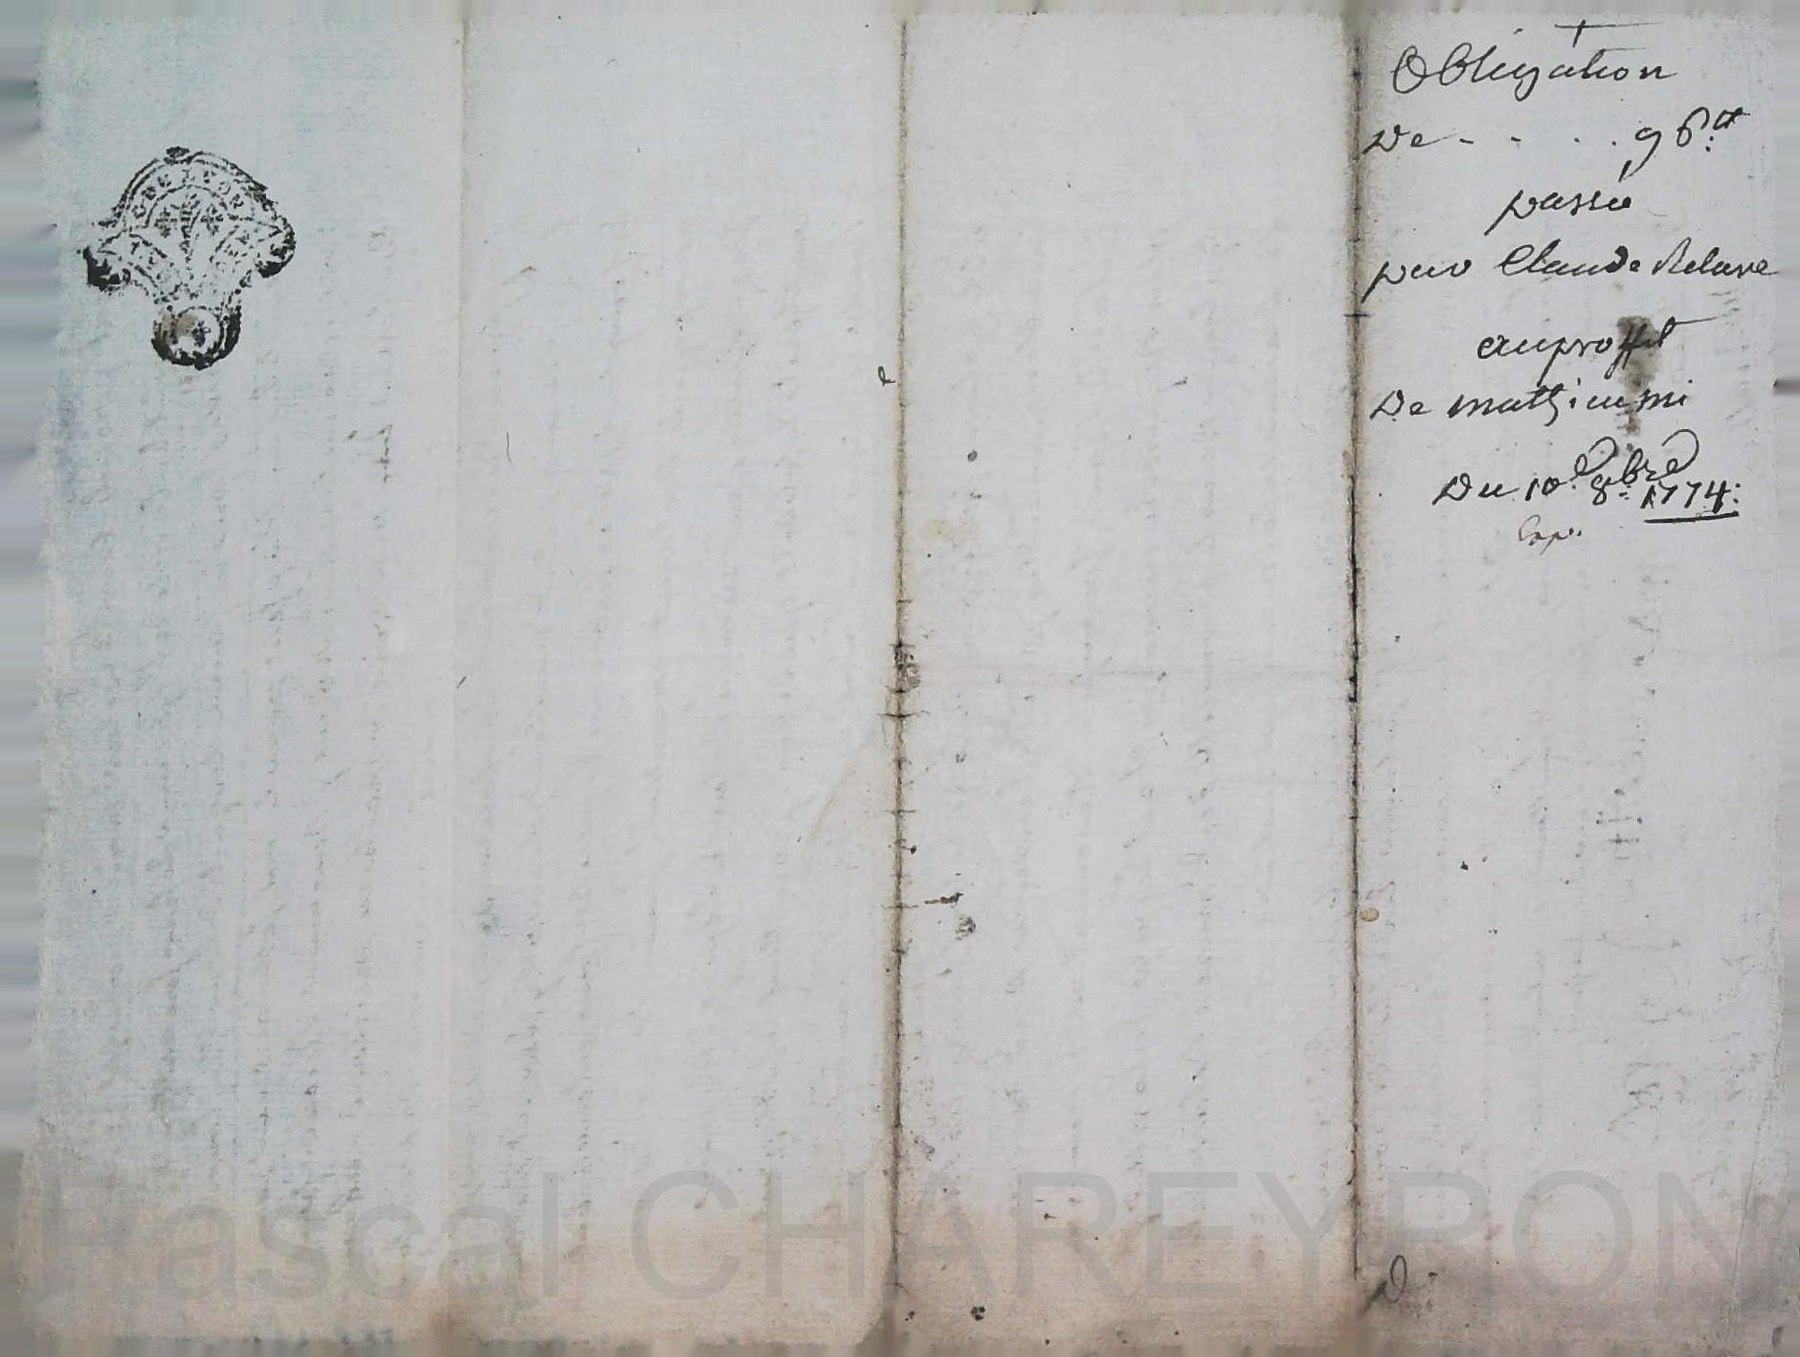 Obligation
De - - . . 96.lt
passé
par Claude Relave
auproffit
De mathieu mi
Du 10e. 8bre. 1774:
Cop.
D
Pascal CHAREYRON